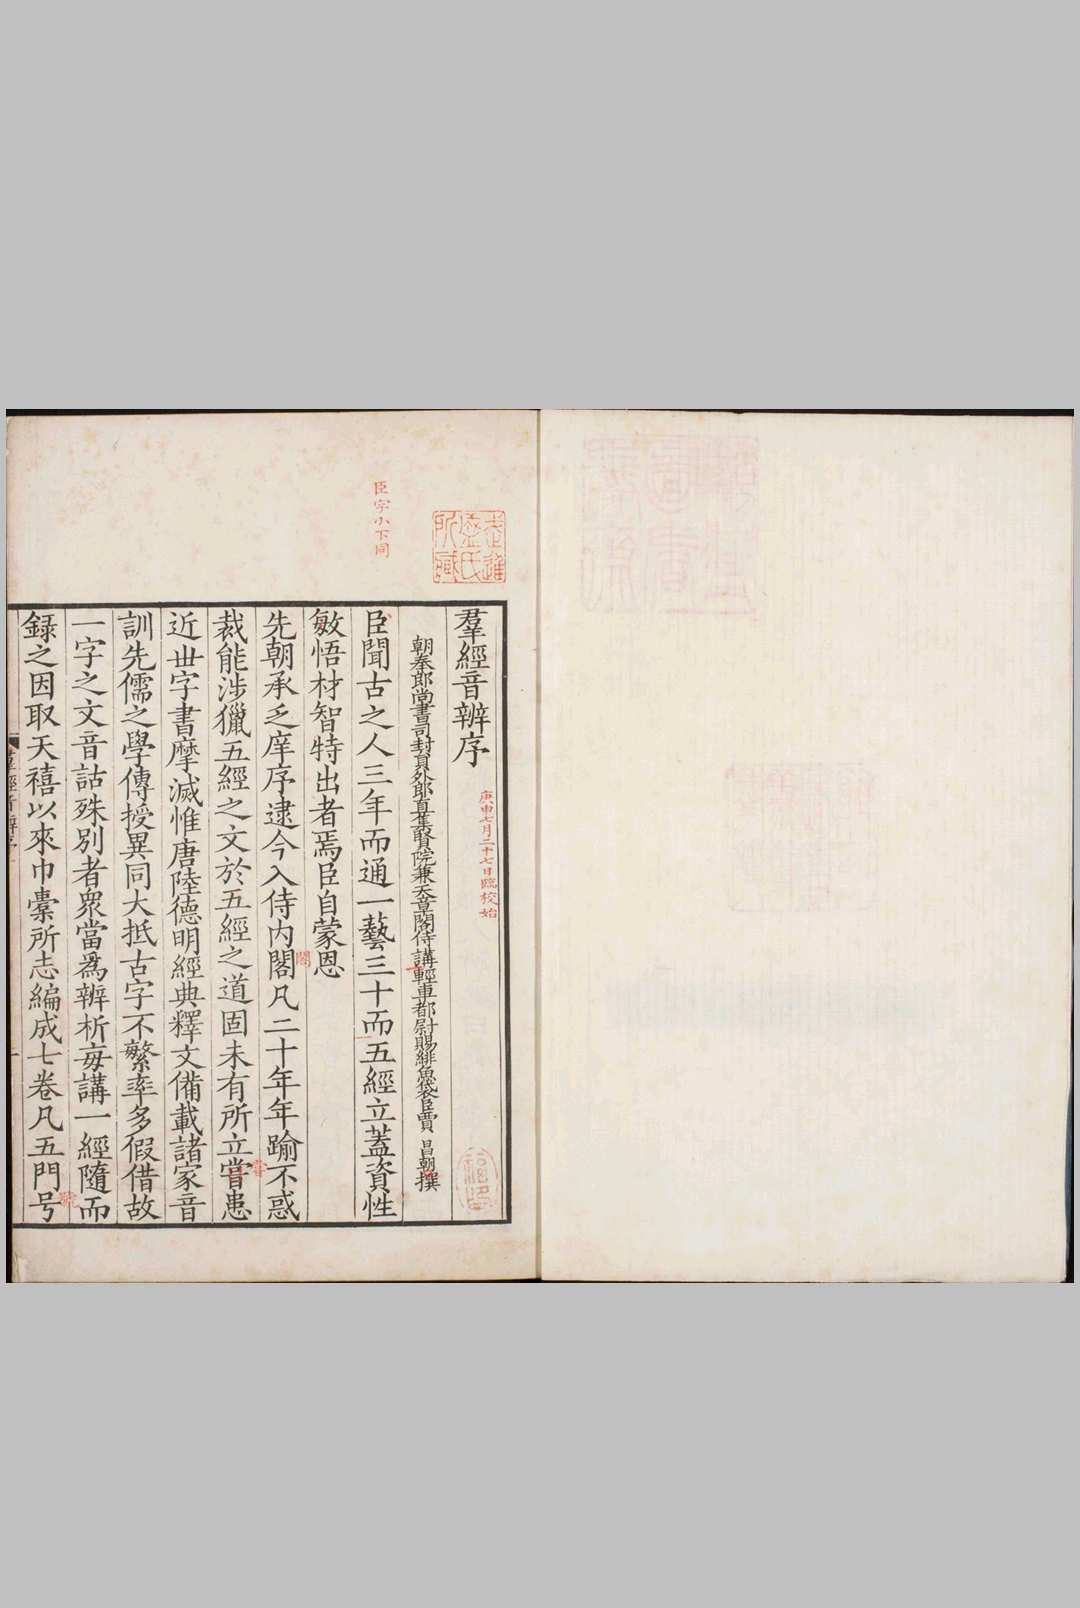 羣經音辨序
庚申七月二十七日臨校始
朝奉郎尚書司封員外郎直集賢院兼天章閣侍講輕車都尉賜緋魚袋臣賈昌朝撰
臣字小下同
臣聞古之人三年而通一藝三十而五經立蓋資性
敏悟材智特出者焉臣自蒙恩
先朝承乏庠序逮今入侍內閣凡二十年年踰不惑
閣
裁能涉獵五經之文於五經之道固未有所立嘗患
近世字書摩滅惟唐陸德明經典釋文備載諸家音
訓先儒之學傳授異同大抵古字不繁率多假借故
一字之文音詁殊別者衆當爲辨析每講一經隨而
錄之因取天禧以來巾橐所志編成七卷凡五門号
號
羣經音辨序